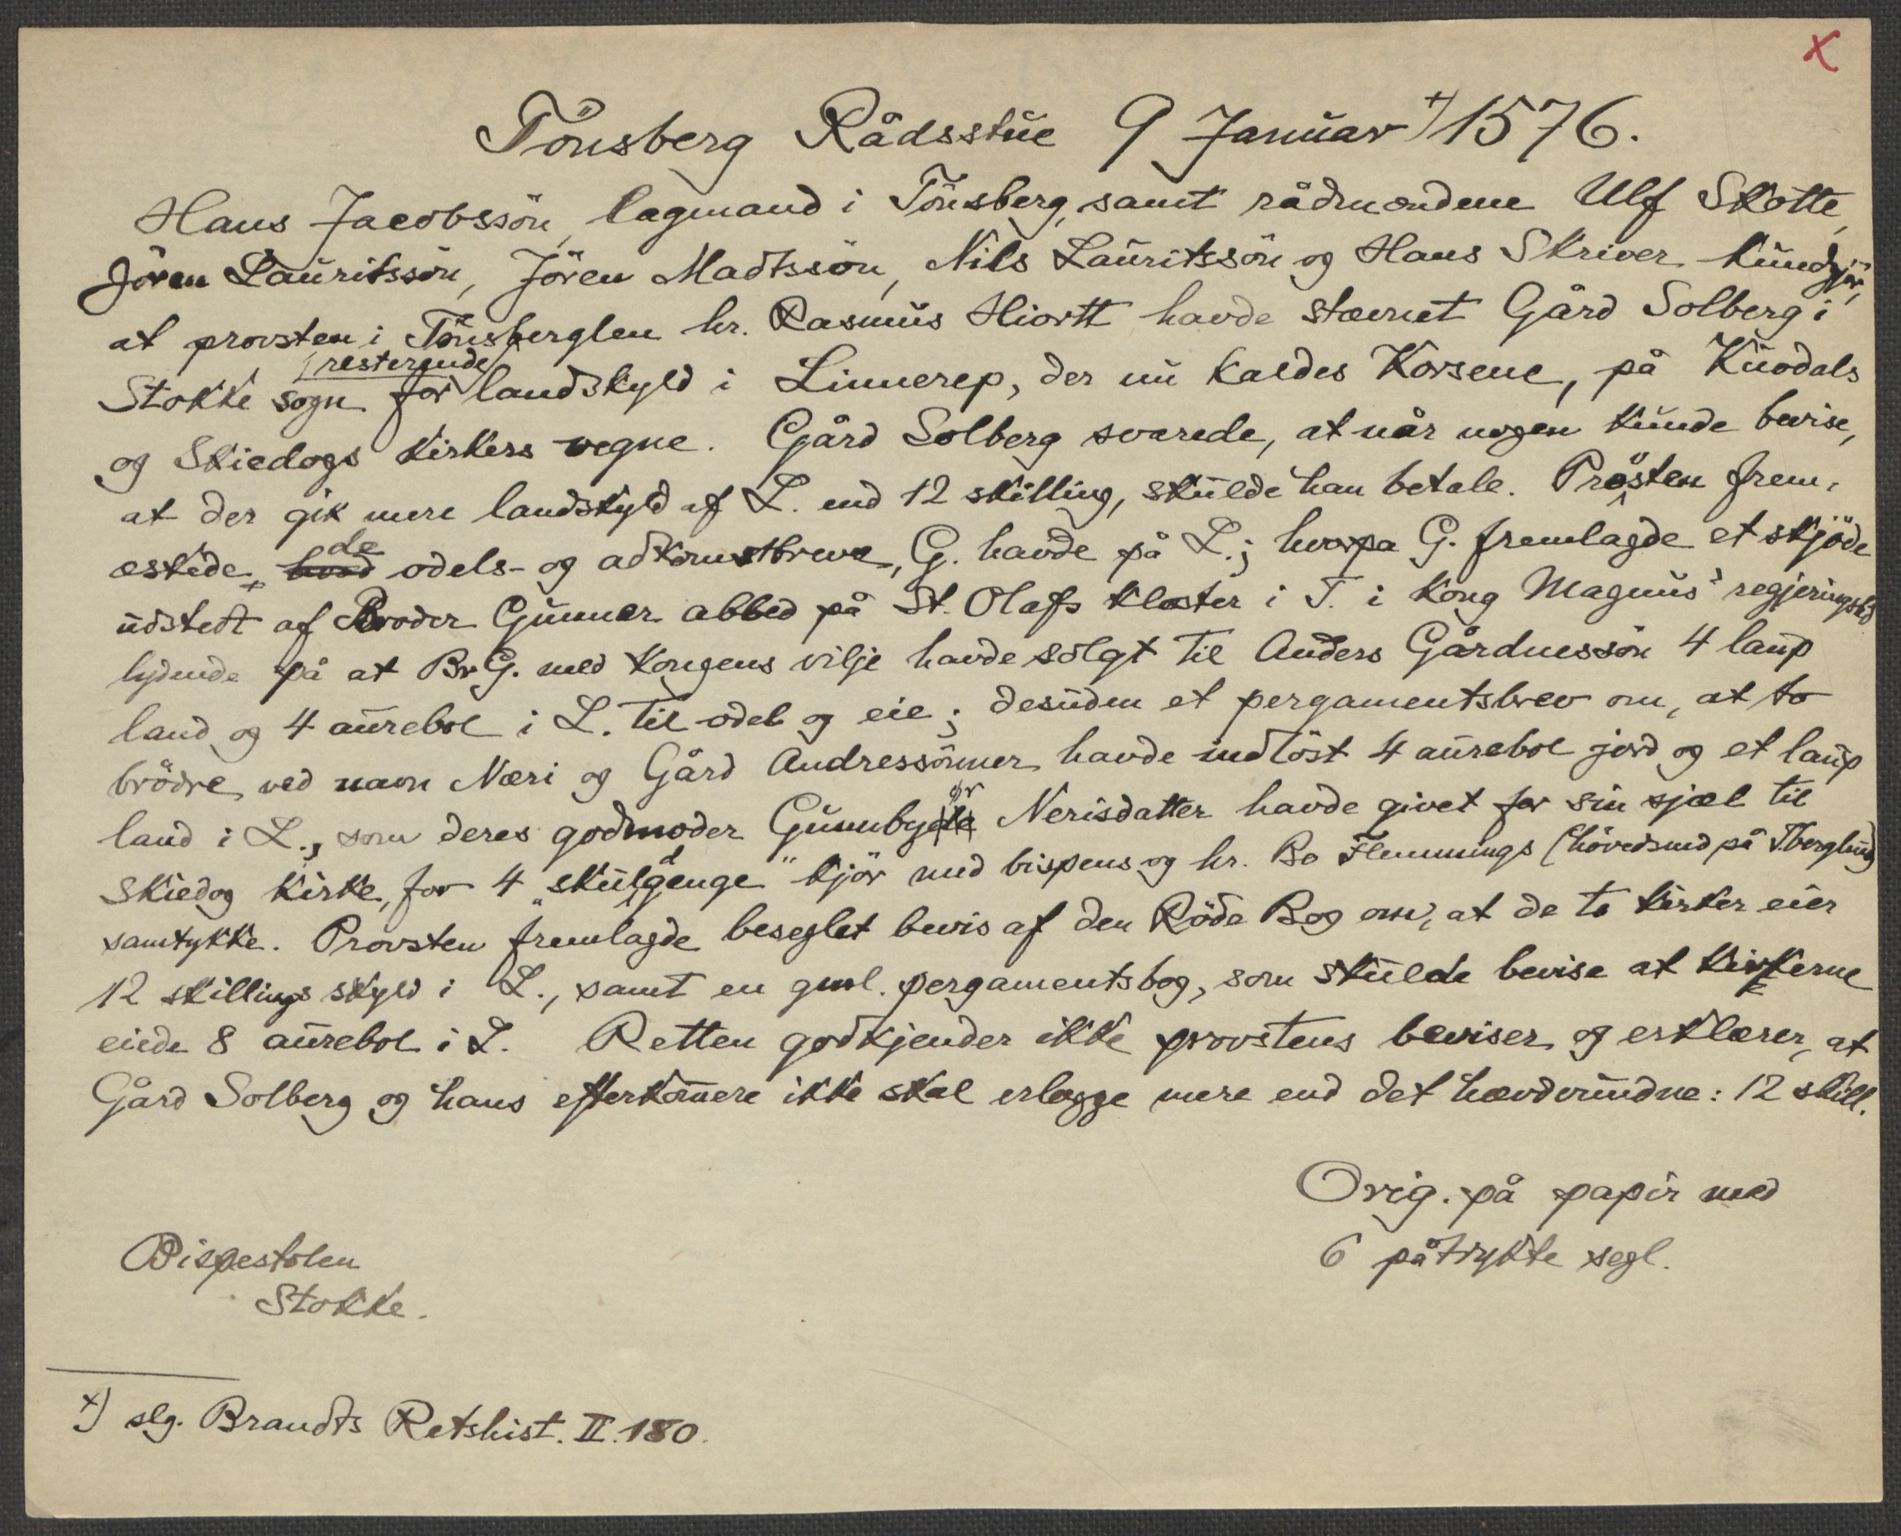 x
Tönsberg Rådsstue 9 Januar +) 1576.
Hans Jacobssön, lagmand i Tönsberg, samt rådmændene Ulf Skotte,
Jören Lauritssön, Jören Madtssön, Nils Lauritssön og Hans Skriver kundgjör,
at provsten i Tönsberglen hr. Rasmus Hiortt havde stævnet Gård Solberg i
Stokke sogn for resterende landskyld i Linnerep, der nu kaldes Korsene, på Kuodals
og Skiedogs kirkers vegne. Gård Solberg svarede, at når nogen kunde bevise,
at der gik mere landskyld af L. end 12 skilling, skulde han betale. Prosten frem-
æskede de odels- og adkomstbreve, G. havde på L.; hvorpa G. fremlagde et skjöde
udstedt af Broder Gunnar abbed på St. Olafs kloster i T. i kong Magnus' regjeringstid
lydende på at Br G. med kongens vilje havde solgt til Anders Gårdnessön 4 laup
land og 4 aurebol i L. til odel og eie; desuden et pergamentsbrev om, at to
brödre ved navn Næri og Gård Andressönner havde indlöst 4 aurebol jord og et laup
land i L., som deres godmoder Gunnbyör Nerisdatter havde givet for sin sjæl til
Skiedog kirke, for 4 "skuldgenge" kjör med bispens og hr. Bo Flemmings (hövedsmd på Tberghus)
samtykke. Provsten fremlagde beseglet bevis af den Röde Bog om, at de to kirker eier
12 skillings skyld i L., samt en gml. pergamentsbog, som skulde bevise at kirkerne
eiede 8 aurebol i L. Retten godkjender ikke provstens beviser og erklærer, at
Gård Solberg og hans efterkommere ikke skal erlægge mere end det hævdvundne: 12 skill.
Orig. på papir med
6 påtrykte segl.
Bispestolen
Stokke.
+) slg. Brandts Retshist. II. 180.